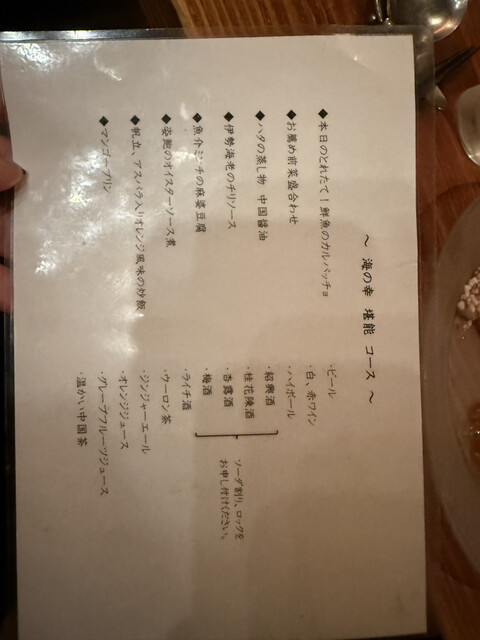 ～ 海の幸 堪能 コース ～
◆本日のとれたて！鮮魚のカルパッチョ
◆お薦め前菜盛合わせ
◆ハタの蒸し物 中国醤油
◆伊勢海老のチリソース
◆魚介ミンチの麻婆豆腐
◆姿鮑のオイスターソース煮
◆帆立、アスパラ入りオレンジ風味の炒飯
◆マンゴープリン
・ビール
・白、赤ワイン
・ハイボール
・紹興酒
・桂花陳酒
・杏露酒
・梅酒
・ライチ酒
ソーダ割り、ロックを
お申し付けください。
・ウーロン茶
・ジンジャーエール
・オレンジジュース
・グレープフルーツジュース
・温かい中国茶